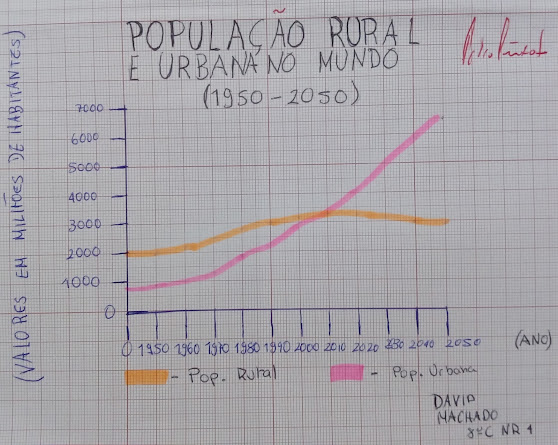 POPULAÇÃO RURAL
E URBANA NO MUNDO
(1950-2050)
(VALORES EM MILHÕES DE HABITANTES)
7000
6000
5000
4000
3000
2000
1000
0
0 1950 1960 1970 1980 1990 2000 2010 2020 230 2040 2050 (ANO)
- Pop. Rural - Pop. Urbana
DAVID
MACHADO
8ºC NR 1